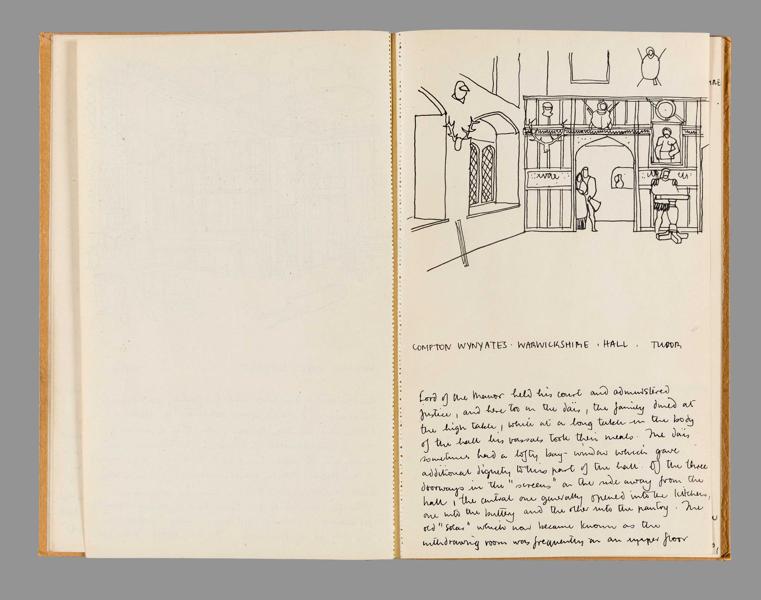 COMPTON WYNYATES · WARWICKSHIRE · HALL · TUDOR
Lord of the Manor held his court and administered
justice, and here too on the daïs, the family dined at
the high table, while at a long table in the body
of the hall his vassals took their meals. The daïs
sometimes had a lofty bay-window which gave
additional dignity to this part of the hall. Of the three
doorways in the "screens" on the side away from the
hall, the central one generally opened into the kitchens,
one into the buttery and the other into the pantry. The
old "solar" which now became known as the
withdrawing room was frequently on an upper floor